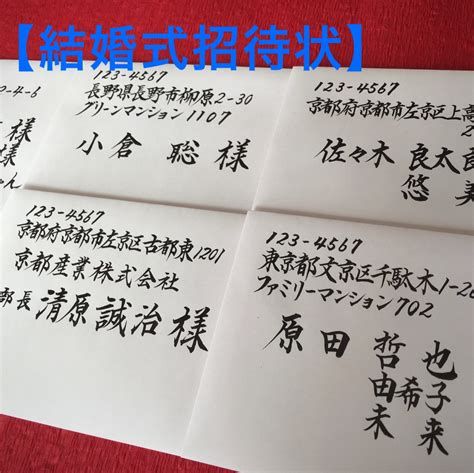 【結婚式招待状】
-4-6
様
様
ゃん
123-4567
長野県長野市柳原2-30
グリーンマンション1107
小倉 聡 様
123-4567
京都府京都市左京区上高
佐々木 良太郎
悠 美
123-4567
京都府京都市左京区古都東1201
京都産業株式会社
部長 清原誠治 様
123-4567
東京都文京区千駄木1-2
ファミリーマンション702
原田 哲 也
由希子
未 来